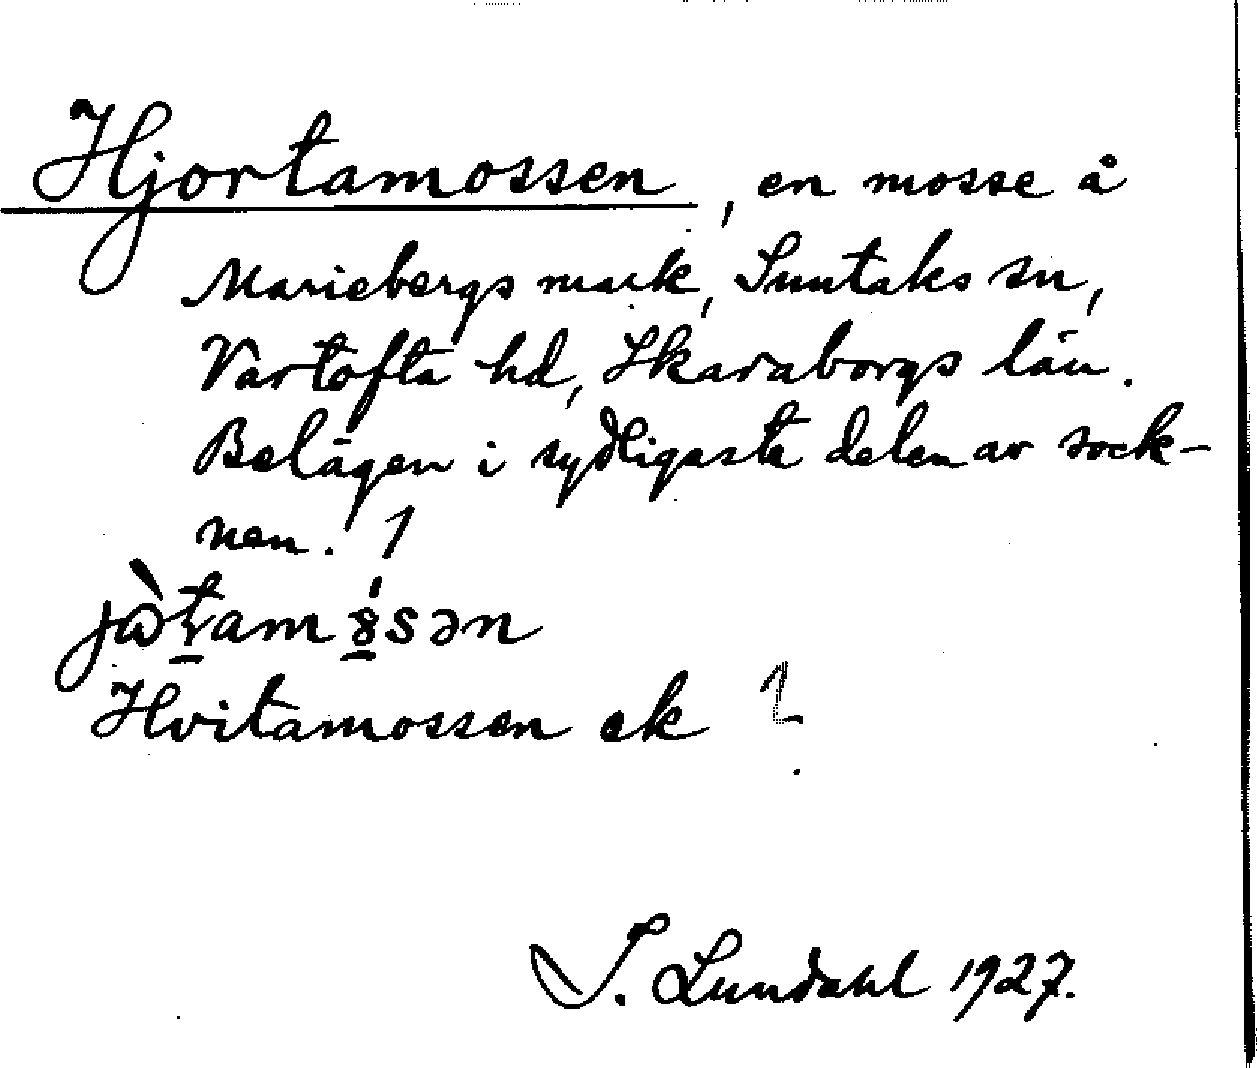 Hjortamossen, en mosse å
Mariebergs mark, Suntaks sn,
Vartofta hd, Skaraborgs län.
Belägen i sydligaste delen av sock-
nen. 1
Hvitamossen ek 1
I. Lundahl 1927.